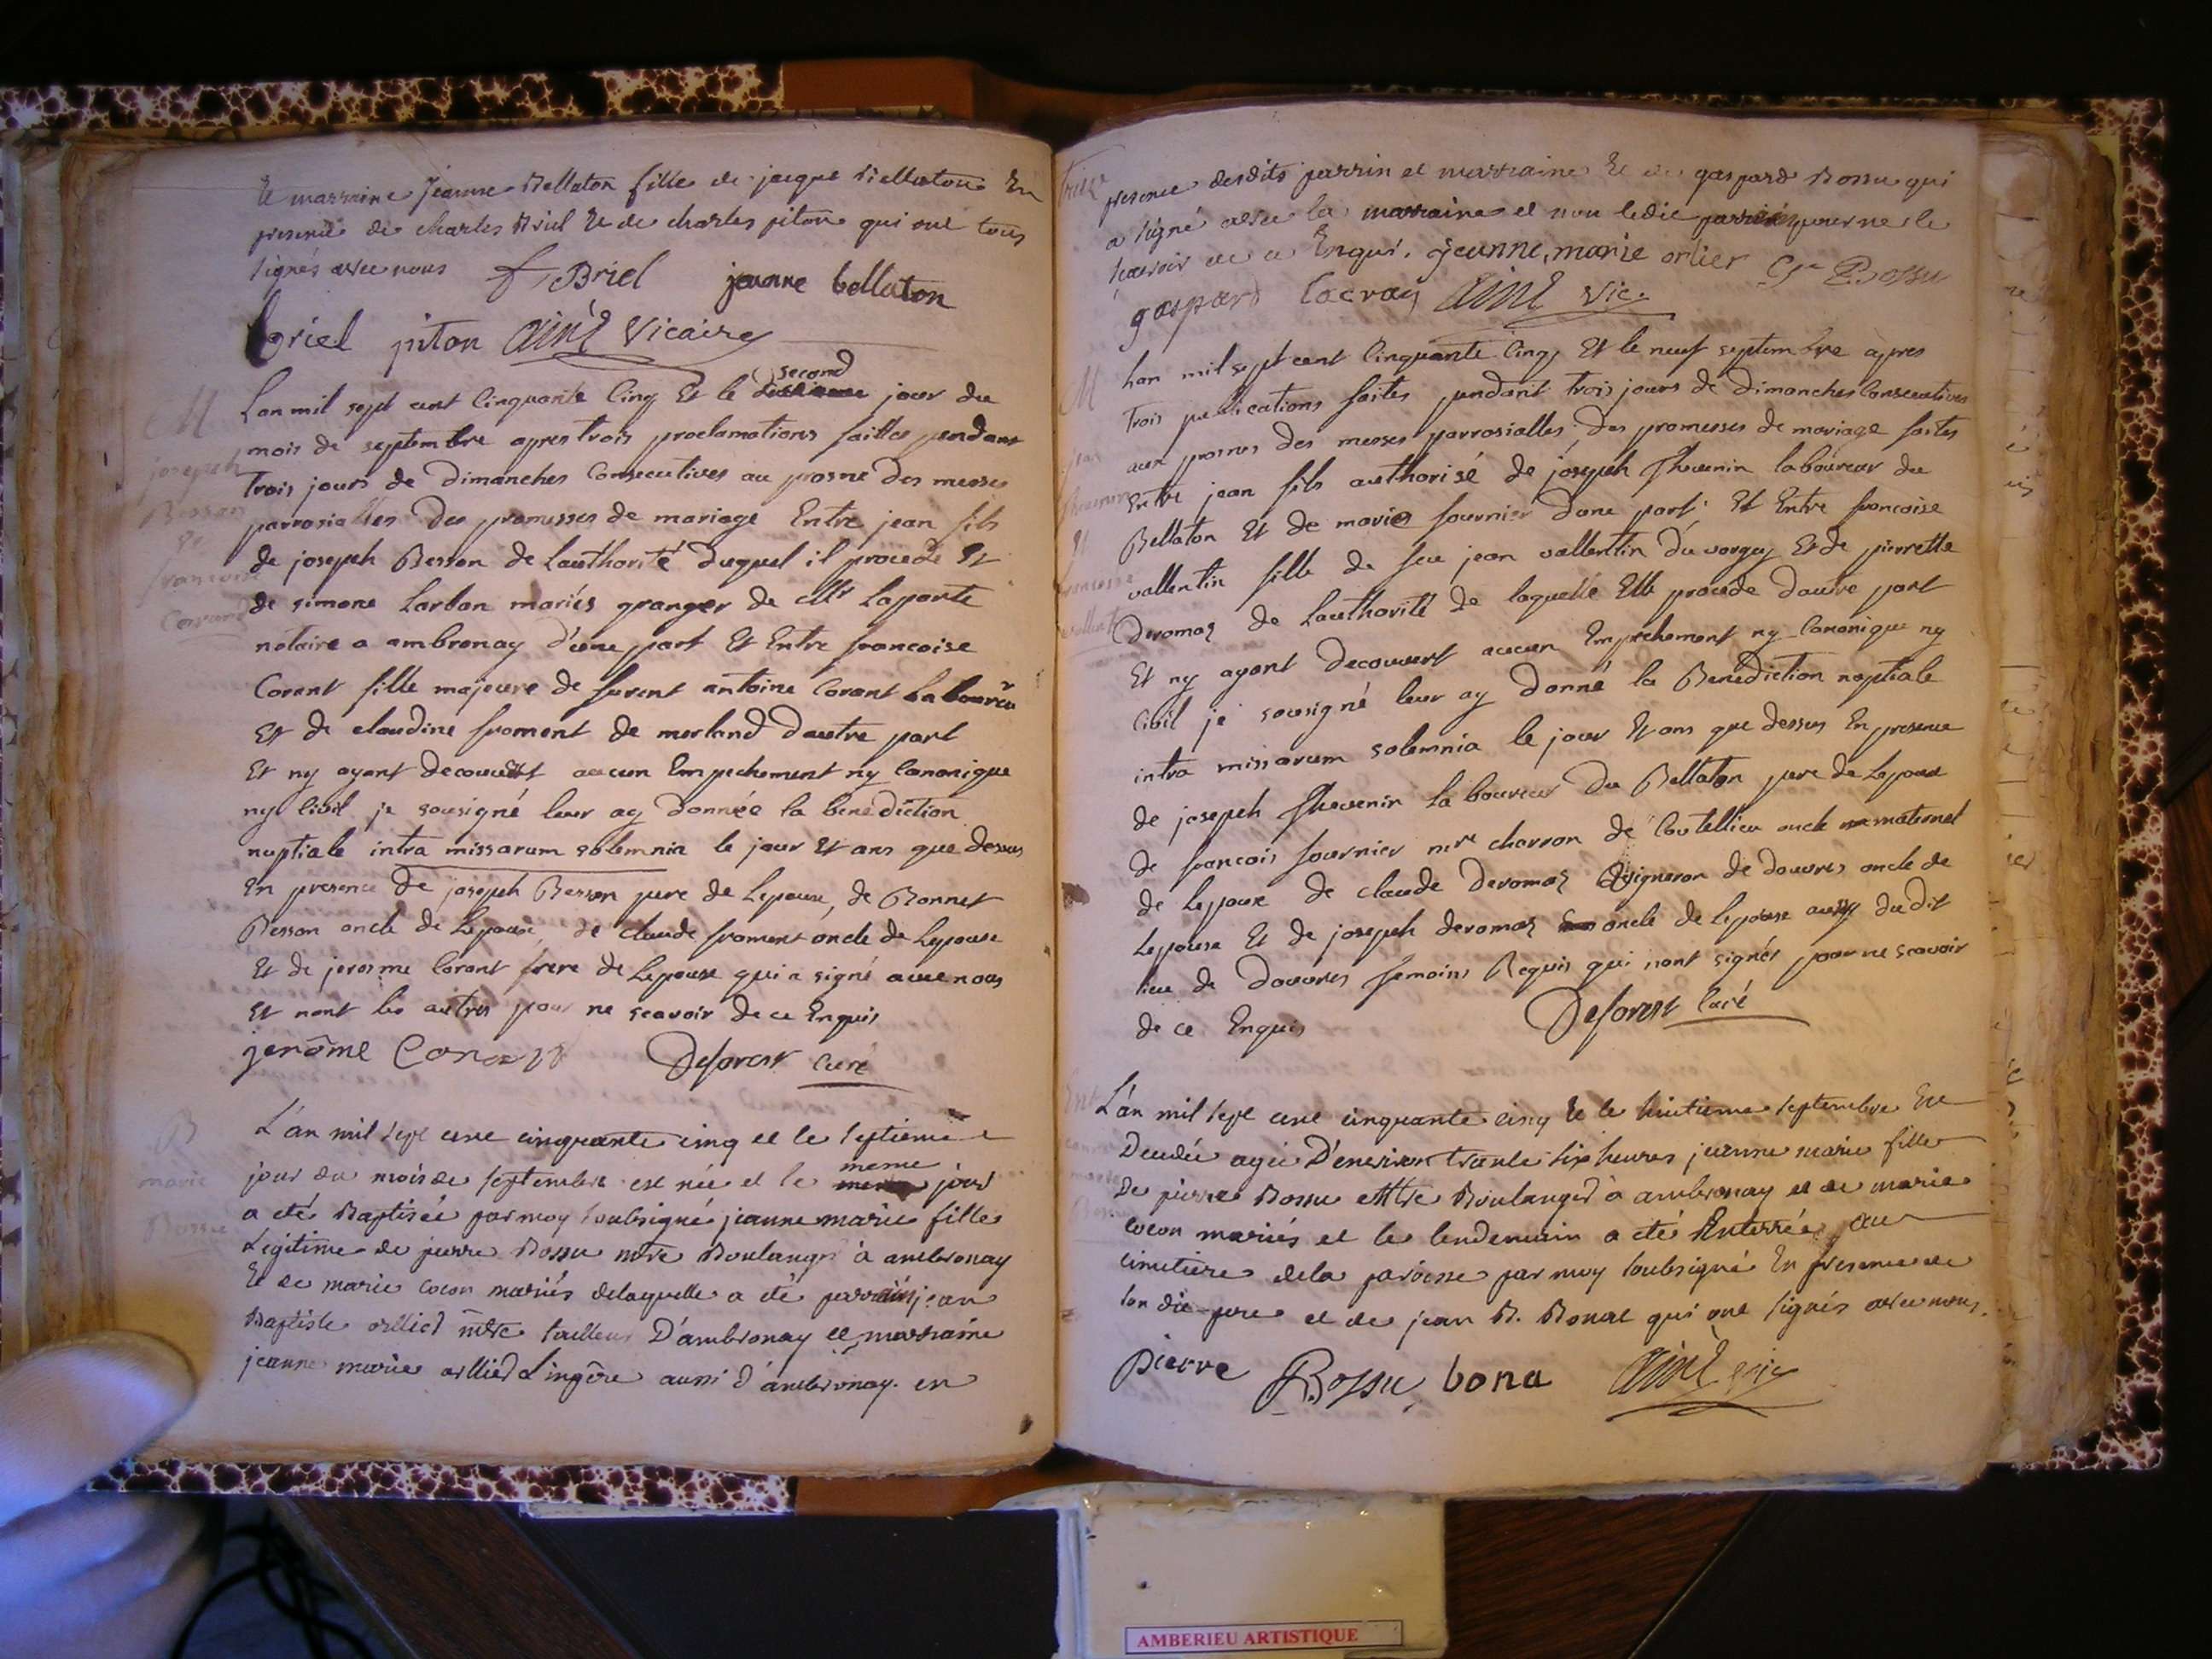 Et marraine Jeanne Bellaton fille de jacque Bellaton En
presence de charles Briel Et de charles piton qui ont tous
signés avec nous f Briel jeanne bellaton
briel piton Aimé Vicaire
M
Lan mil sept cent Cinquante Cinq Et le second jour du
mois de septembre apres trois proclamations faittes pendant
joseph
trois jours de Dimanches Consecutives au prosne des messes
Besson
parrosialles Des promesses de mariage Entre jean fils
Et
de joseph Besson de Lauthorité duquel il procede Et
francoise
de simone Larban mariés granger de Mr Laporte
Corant
notaire a ambronay d'une part Et Entre francoise
Corant fille majeure de furent antoine Corant Laboureur
Et de claudine froment de merland dautre part
Et ny ayant decouvert aucun Empechement ny Canonique
ny Civil je sousigné leur ay donnée la benediction
nuptiale intra missarum solemnia le jour Et ans que dessus
En presence de joseph Besson pere de Lepoux, de Bonnet
Besson oncle de Lepoux, de claude froment oncle de Lepouse
Et de jerosme Corant frere de Lepouse qui a signé avec nous
Et nont les autres pour ne scavoir de ce Enquis
jerôme Corant Deforest Curé
B
L'an mil sept cent cinquante cinq et le septieme
marie
jour du mois de septembre est née et le meme jour
Bossu
a eté Baptisée par moy soubsigné jeanne marie fille
Legitime de pierre Bossu mtre Boulanger à ambronay
Et de marie cocon mariés delaquelle a eté parrain jean
Baptiste orllier mtre tailleur D'ambronay et marraine
jeanne marie orllier Lingêre aussi d'ambronay. en
presence desdits parrin et marraine Et de gaspard Bossu qui
a signé avec la marraine et non ledit parrin pour ne le
scavoir de ce Enquis. Jeanne, marie orlier
gaspard Aimé Vic. Bossu
M
Lan mil sept cent Cinquante Cinq Et le neuf septembre apres
Trois publications faites pendant trois jours de Dimanches Consecutives
jean
aux prosnes des messes parrosialles, des promesses de mariage faites
Thevenin
Entre jean fils authorisé de joseph Thevenin laboureur du
Et
Bellaton Et de marie fournier dune part Et Entre francoise
francoise
vallentin fille de feu jean vallentin du vorgey Et de pierrette
vallentin
Deromas de Lauthorité de laquelle Elle procede dautre part
Et ny ayant decouvert aucun Empechement ny Canonique ny
Civil je sousigné leur ay donné la Benediction nuptiale
intra missarum solemnia le jour Et ans que dessus En presence
de joseph Thevenin laboureur du Bellaton pere de Lepoux
de francois fournier mre charron de Coutellieu oncle maternel
de lepoux de claude Deromas vigneron de douvres oncle de
Lepouse Et de joseph deromas oncle de lepouse aussy du dit
lieu de Douvres temoins Requis qui nont signés pour ne scavoir
de ce Enquis Deforest Curé
Ent
L'an mil sept cent cinquante cinq Et le huitieme septembre Est
Decedée agée D'environ trente six heures jeanne marie fille
De pierre Bossu Mtre Boulanger à ambronay et de marie
cocon mariés et le lendemain a eté Enterrée au
cimetiere dela paroisse par moy soubsigné En presence de
son dit pere et de jean B. Bonat qui ont signés avec nous.
pierre Bossu bona Aimé vic
AMBERIEU ARTISTIQUE